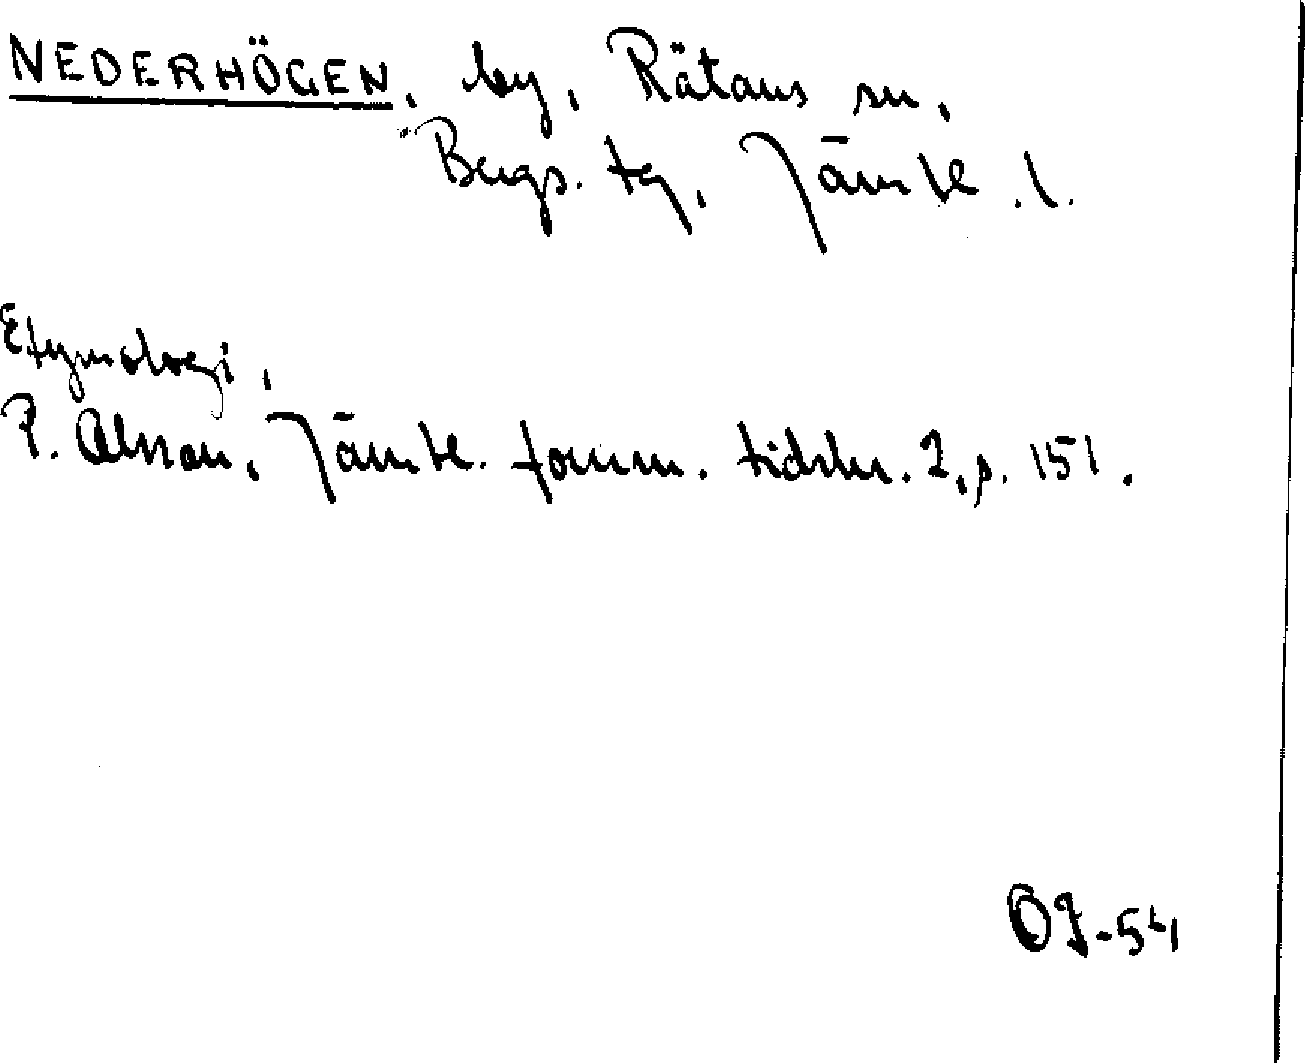 NEDERHÖGEN, by, Rätans sn,
Bergs. tg, Jämtl. l.
Etymologi,
P. Olsson, Jämtl. fornm. tidskr. 2, s. 151.
OJ-54